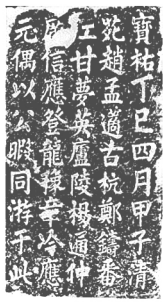 寶祐丁巳四月甲子青
苑趙孟適古杭鄭鑄番
江甘夢英廬陵楊通仲
信應登龍豫章冷應
元偶以公暇同游于此